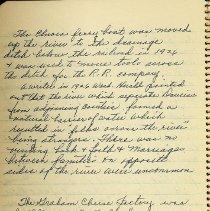 The Chism ferry boat was moved
up the river to the drainage
ditch below the railroad in 1926
& was used to move tools across
the ditch for the R.R. company.
A writer in 1906 Wm. Heath pointed
out that the river which separates Dawson
from adjoining counties formed a
natural barrier of water which
resulted in folks across the river
being strangers. There was no
visiting back & forth & Marriages
between families on opposite
sides of the river were uncommon
The Graham Cheese Factory was